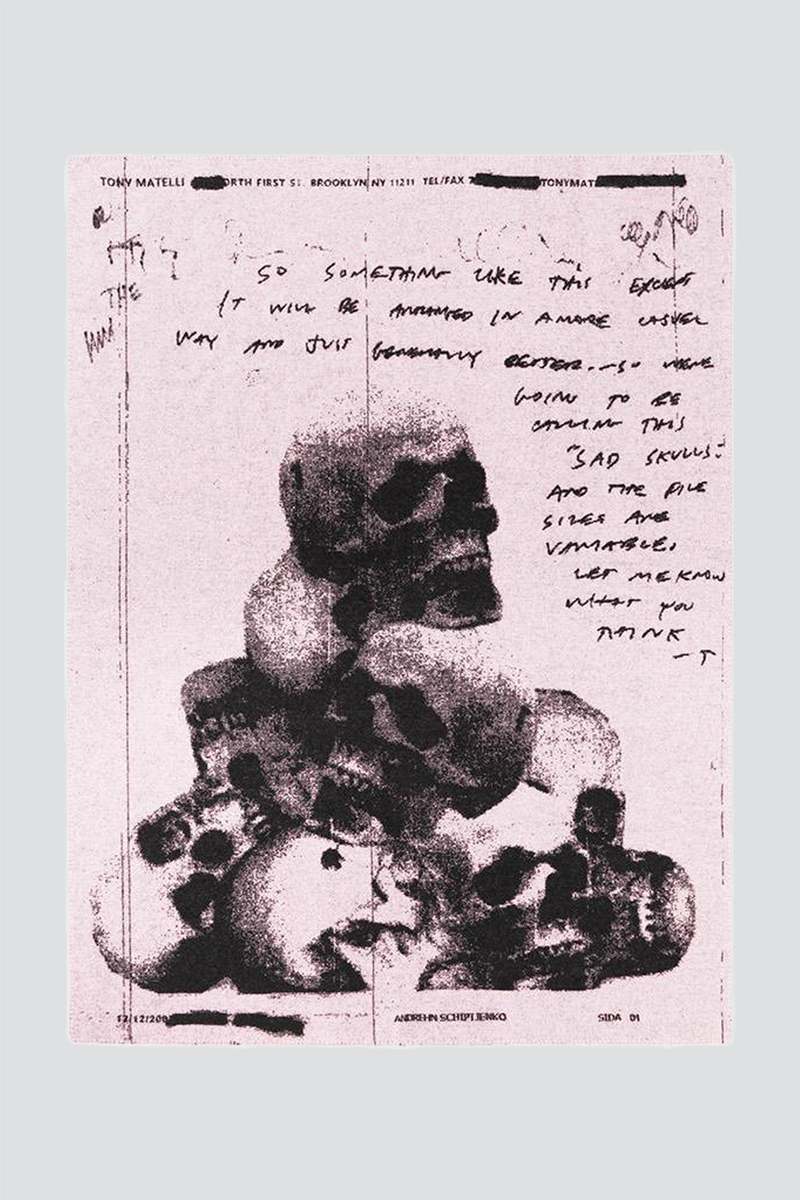 TONY MATELLI ORTH FIRST ST. BROOKLYN NY 11211 TEL/FAX 7 TONYMAT
THE
SO SOMETHING LIKE THIS EXCEPT
IT WILL BE ARRANGED IN A MORE CASUEL
WAY AND JUST GENERALLY BETTER.—SO WERE
GOING TO BE
CALLING THIS
"SAD SKULLS."
AND THE FILE
SIZES ARE
VARIABLE.
LET ME KNOW
WHAT YOU
THINK
—T
12/12/200 ANDREHN SCHIPTJENKO SIDA 01